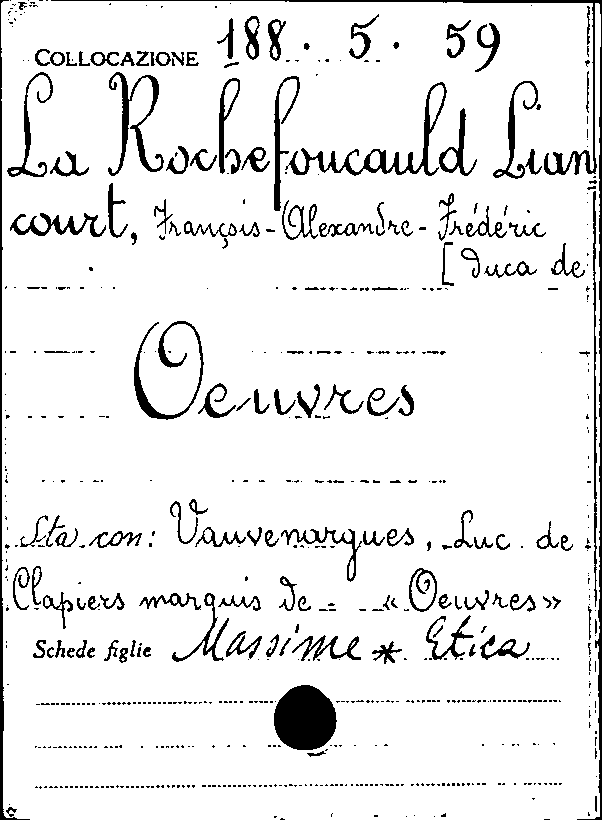 COLLOCAZIONE 188. 5. 59
La Rochefoucauld Lian
court, François-Alexandre-Frédéric
[duca de
Oeuvres
Sta con: Vauvenargues, Luc de
Clapiers marquis de - «Oeuvres»
Schede figlie Massime * Etica